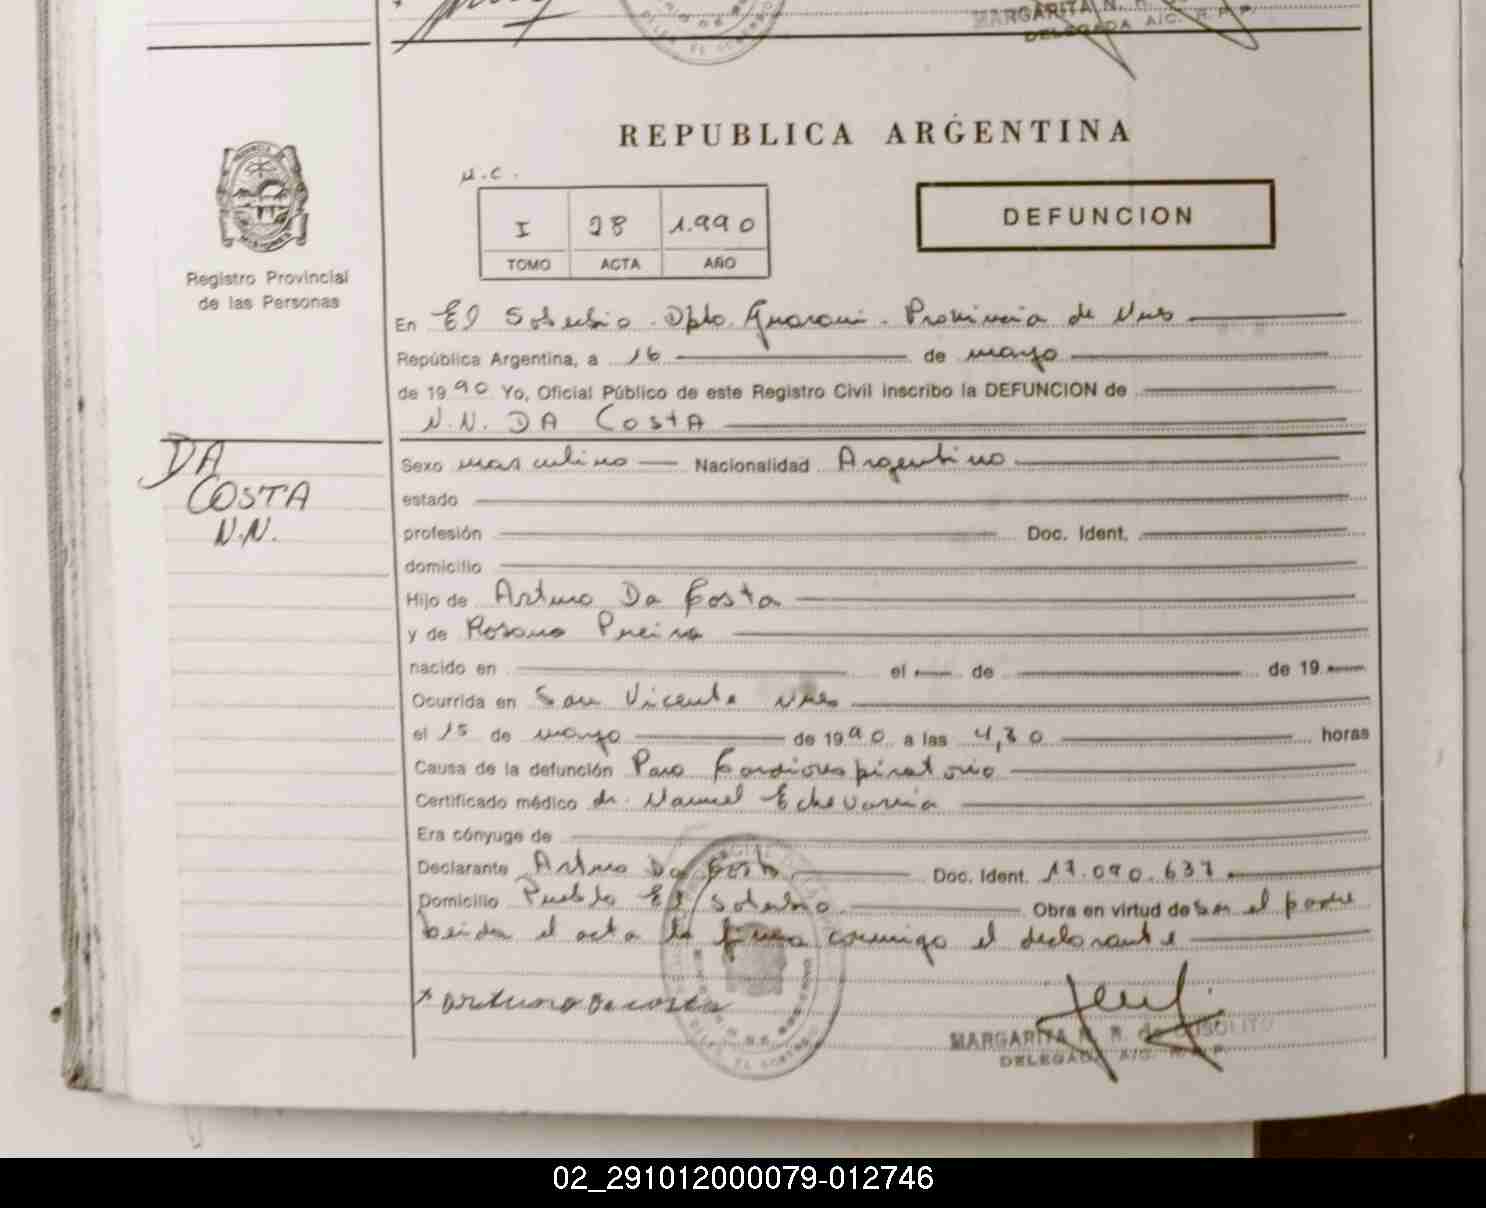 MARGARITA N. R.
DELEGADA A/C. R.P.P.
REPUBLICA ARGENTINA
M.C.
I 28 1.990
TOMO ACTA AÑO
DEFUNCION
Registro Provincial
de las Personas
En El Soberbio. Dpto. Guarani. Provincia de Mnes
República Argentina, a 16 de mayo
de 1990 Yo, Oficial Público de este Registro Civil inscribo la DEFUNCION de
N.N. DA COSTA
DA
COSTA
N.N.
Sexo masculino Nacionalidad Argentino
estado
profesión Doc. Ident.
domicilio
Hijo de Arturo Da Costa
y de Rosana Pereira
nacido en el de de 19
Ocurrida en San Vicente Mnes
el 15 de mayo de 1990 a las 4,30 horas
Causa de la defunción Paro Cardiorespiratorio
Certificado médico dr. Manuel Echevarria
Era cónyuge de
Declarante Arturo Da Costa Doc. Ident. 17.090.637
Domicilio Pueblo El Soberbio Obra en virtud de ser el padre
leida el acta la firma conmigo el declarante
x arturo Da costa
MARGARITA N. R. de
DELEGADA A/C. R.P.P.
02_291012000079-012746